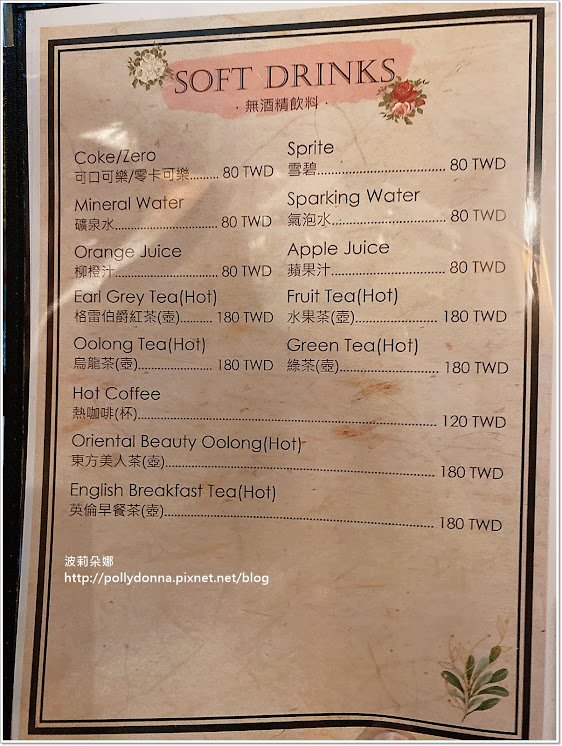 SOFT DRINKS
·無酒精飲料·
Coke/Zero
可口可樂/零卡可樂....... 80 TWD
Sprite
雪碧................................ 80 TWD
Mineral Water
礦泉水............................ 80 TWD
Sparking Water
氣泡水............................ 80 TWD
Orange Juice
柳橙汁............................ 80 TWD
Apple Juice
蘋果汁............................ 80 TWD
Earl Grey Tea(Hot)
格雷伯爵紅茶(壺).......... 180 TWD
Fruit Tea(Hot)
水果茶(壺)...................... 180 TWD
Oolong Tea(Hot)
烏龍茶(壺)...................... 180 TWD
Green Tea(Hot)
綠茶(壺)......................... 180 TWD
Hot Coffee
熱咖啡(杯)........................................................................ 120 TWD
Oriental Beauty Oolong(Hot)
東方美人茶(壺)................................................................ 180 TWD
English Breakfast Tea(Hot)
英倫早餐茶(壺)................................................................ 180 TWD
波莉朵娜
http://pollydonna.pixnet.net/blog